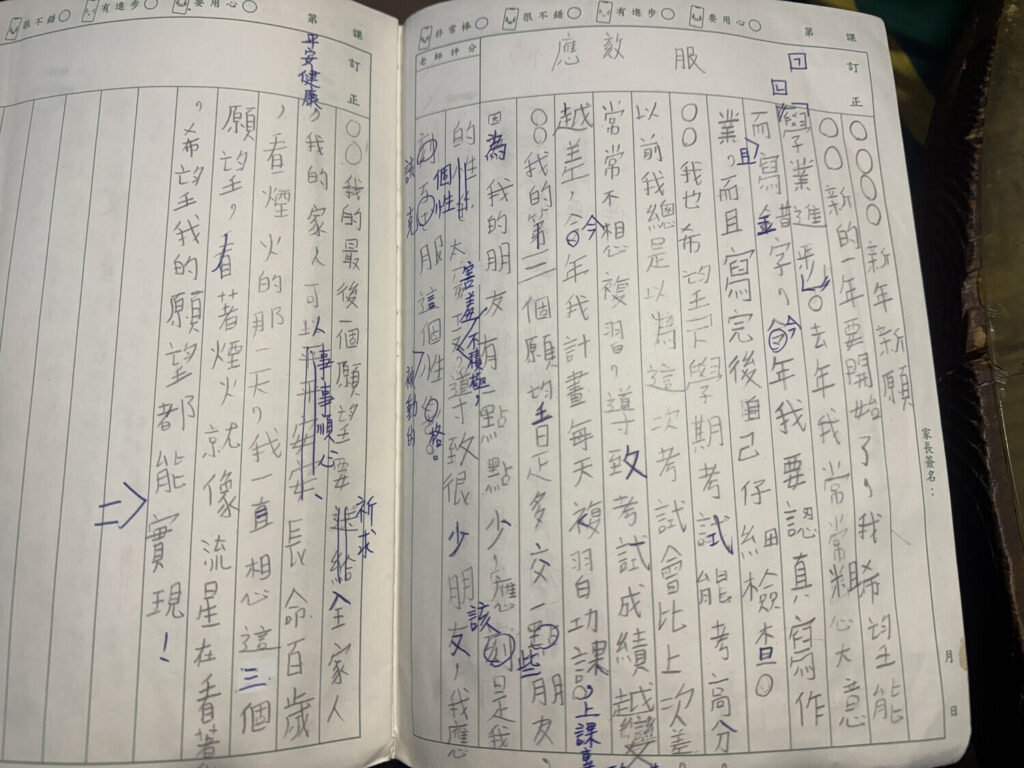 很不錯 有進步 要用心 第 課
訂正
非常棒 很不錯 有進步 要用心 第 課
訂正
老師評分
應 效 服
家長簽名：
月 日
○○○○新年新願
○○新的一年要開始了，我希望能
學業進步。去年我常常粗心大意
而寫錯字，今年我要認真寫作
業，而且寫完後自己仔細檢查。
○○我也希望下學期考試能考高分
以前我總是以為這次考試會比上次差
常常不想複習，導致考試成績越變
越差，今年我計畫每天複習功課，上課
○○我的第二個願望是多交一些朋友，
因為我的朋友有一點點少，應該是我
的個性太害羞、不積極，導致很少朋友，我應
該克服這個被動的性格。
○○我的最後一個願望要祈求給全家人
平安健康，我的家人可以事事順心、長命百歲
，看煙火的那一天，我一直想這三個
願望，看著煙火就像流星在看著
，希望我的願望都能實現！